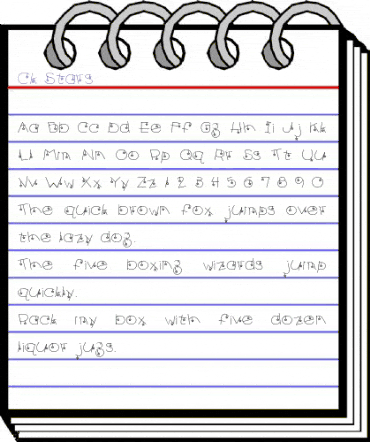 Ck Stars
Aa Bb Cc Dd Ee Ff Gg Hh Ii Jj Kk
Ll Mm Nn Oo Pp Qq Rr Ss Tt Uu
Vv Ww Xx Yy Zz 1 2 3 4 5 6 7 8 9 0
The quick brown fox jumps over
the lazy dog.
The five boxing wizards jump
quickly.
Pack my box with five dozen
liquor jugs.